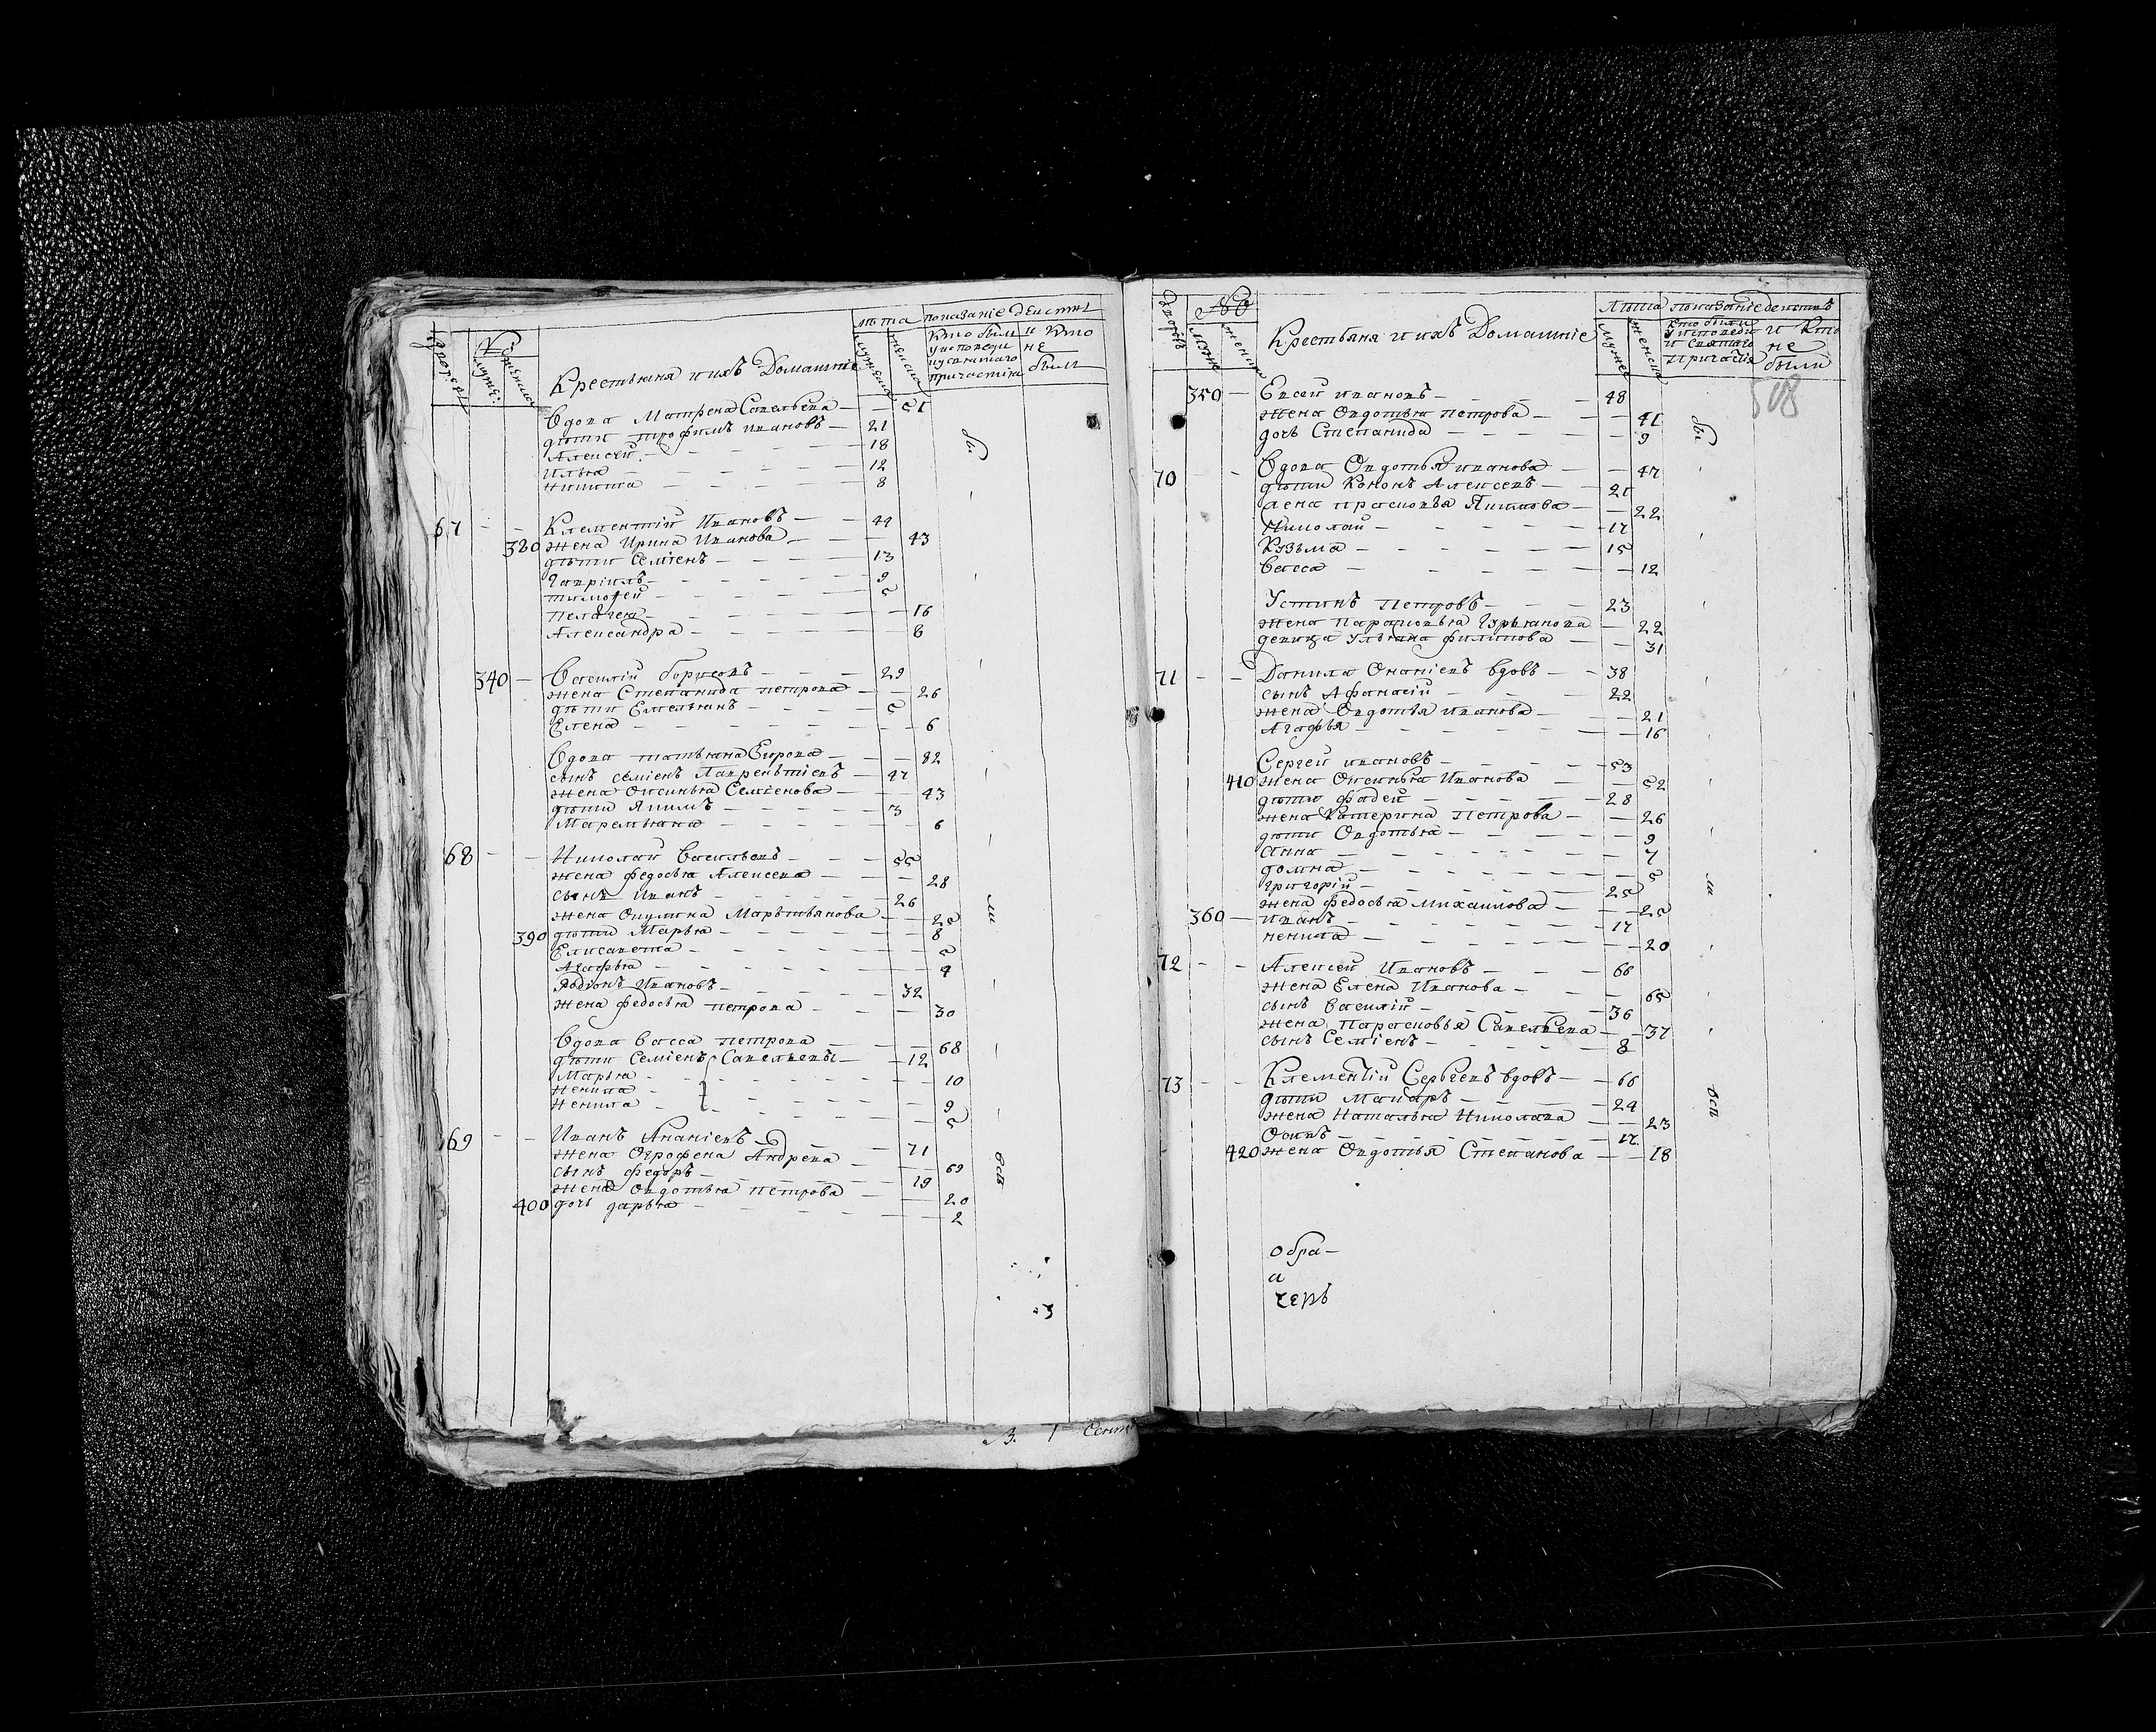 дворовъ № мужеск женска Крестьяня и ихъ Домашніе лѣта мужеска женска показаніе действ
кто были у исповеди и у святаго причастія и кто не были
Вдова Матрена Савельева — 51
дѣти трофимъ ивановъ — 21
Алексей — 18
Илья — 12
Никита — 8
67 Клементій Ивановъ — 44
380 жена Ирина Иванова — 43
дѣти Семіенъ — 13
Гавріилъ — 9
тимофей — 5
Пелагея — 16
Александра — 8
340 Василій борисовъ — 29
жена Степанида петрова — 26
дѣти Емельянъ — 5
Елена — 6
Вдова татьяна Егорова — 82
сынъ семіенъ Лаврентіевъ — 47
жена Оксинья Семіенова — 43
дѣти Якимъ — 3
Маремьяна — 6
68 Николай Васильевъ — 55
жена федосья Алексева — 28
сынъ иванъ — 26
жена Окулина Мартьянова — 25
390 дѣти Марья — 8
Елисавета — 5
Агафья — 4
Родіонъ Ивановъ — 32
жена федосья петрова — 30
Вдова васса петрова — 68
дѣти Семіенъ Савельевы — 12
Марья — 10
Ненила — 9
Ненила — 5
69 Иванъ Ананіевъ — 71
жена Огрофена Андрева — 69
сынъ федоръ — 19
жена Овдотья петрова — 20
400 дочь дарья — 2
бы
ли
вси
дворовъ № мужес женска Крестьяня и ихъ Домашніе Лѣта мужес женска показаніе действъ
кто были у исповеди и святаго причастія и кто не были
508
350 Евсей ивановъ — 48
жена Овдотья петрова — 41
дочь Степанида — 9
70 Вдова Овдотья иванова — 47
дѣти Кононъ Алексевъ — 21
жена прасковья Якимова — 22
Николай — 17
Кузьма — 15
васса — 12
Устинъ петровъ — 23
жена Парасковья Гурьянова — 22
девица Ульяна филипова — 31
71 Данила Онаніевъ вдовъ — 38
сынъ Афанасій — 22
жена Овдотья иванова — 21
Агафья — 16
Сергей ивановъ — 53
410 жена Оксинья Иванова — 52
дѣти фадей — 28
жена Катерина петрова — 26
дѣти Овдотья — 9
Анна — 7
домна — 5
григорій — 25
жена федосья михаилова — 25
360 иванъ — 17
ненила — 20
72 Алексей Ивановъ — 66
жена Елена Иванова — 65
сынъ Василій — 36
жена Парасковья Савельева — 37
сынъ Семіенъ — 8
73 Клементій Сергеевъ вдовъ — 66
дѣти Макаръ — 24
жена Наталья Николава — 23
Осипъ — 17
420 жена Овдотья Степанова — 18
бы
ли
вси
обра—
а
черъ